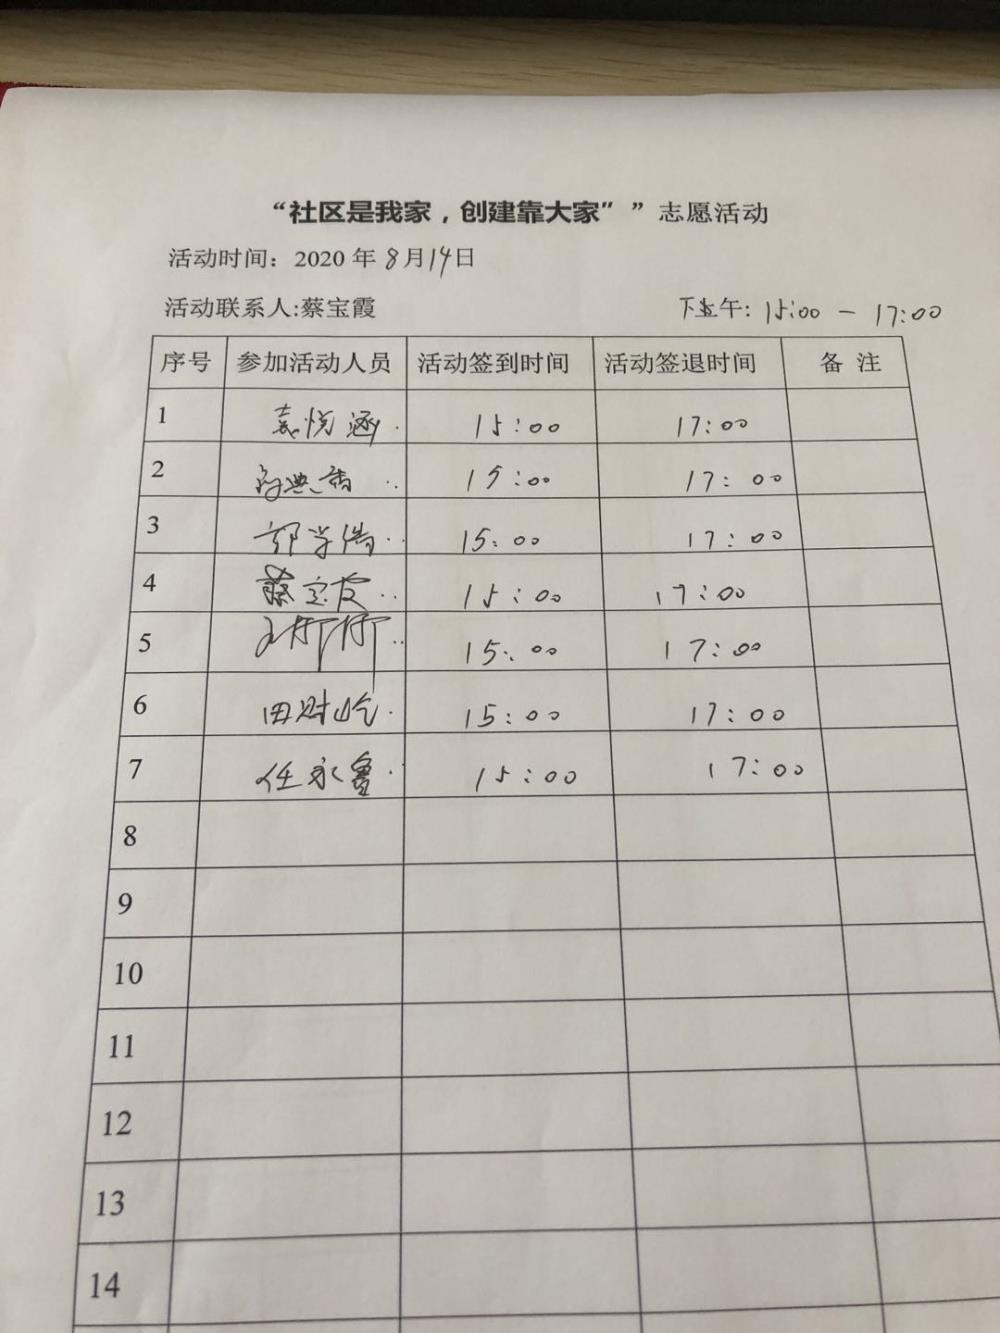 “社区是我家，创建靠大家””志愿活动
活动时间：2020年8月14日
活动联系人:蔡宝霞 下午：15:00 — 17:00
序号 参加活动人员 活动签到时间 活动签退时间 备 注
1 悦涵 15:00 17:00
2 15:00 17:00
3 郭学倩 15:00 17:00
4 蔡宝霞 15:00 17:00
5 15:00 17:00
6 田财屹 15:00 17:00
7 任永鲁 15:00 17:00
8
9
10
11
12
13
14